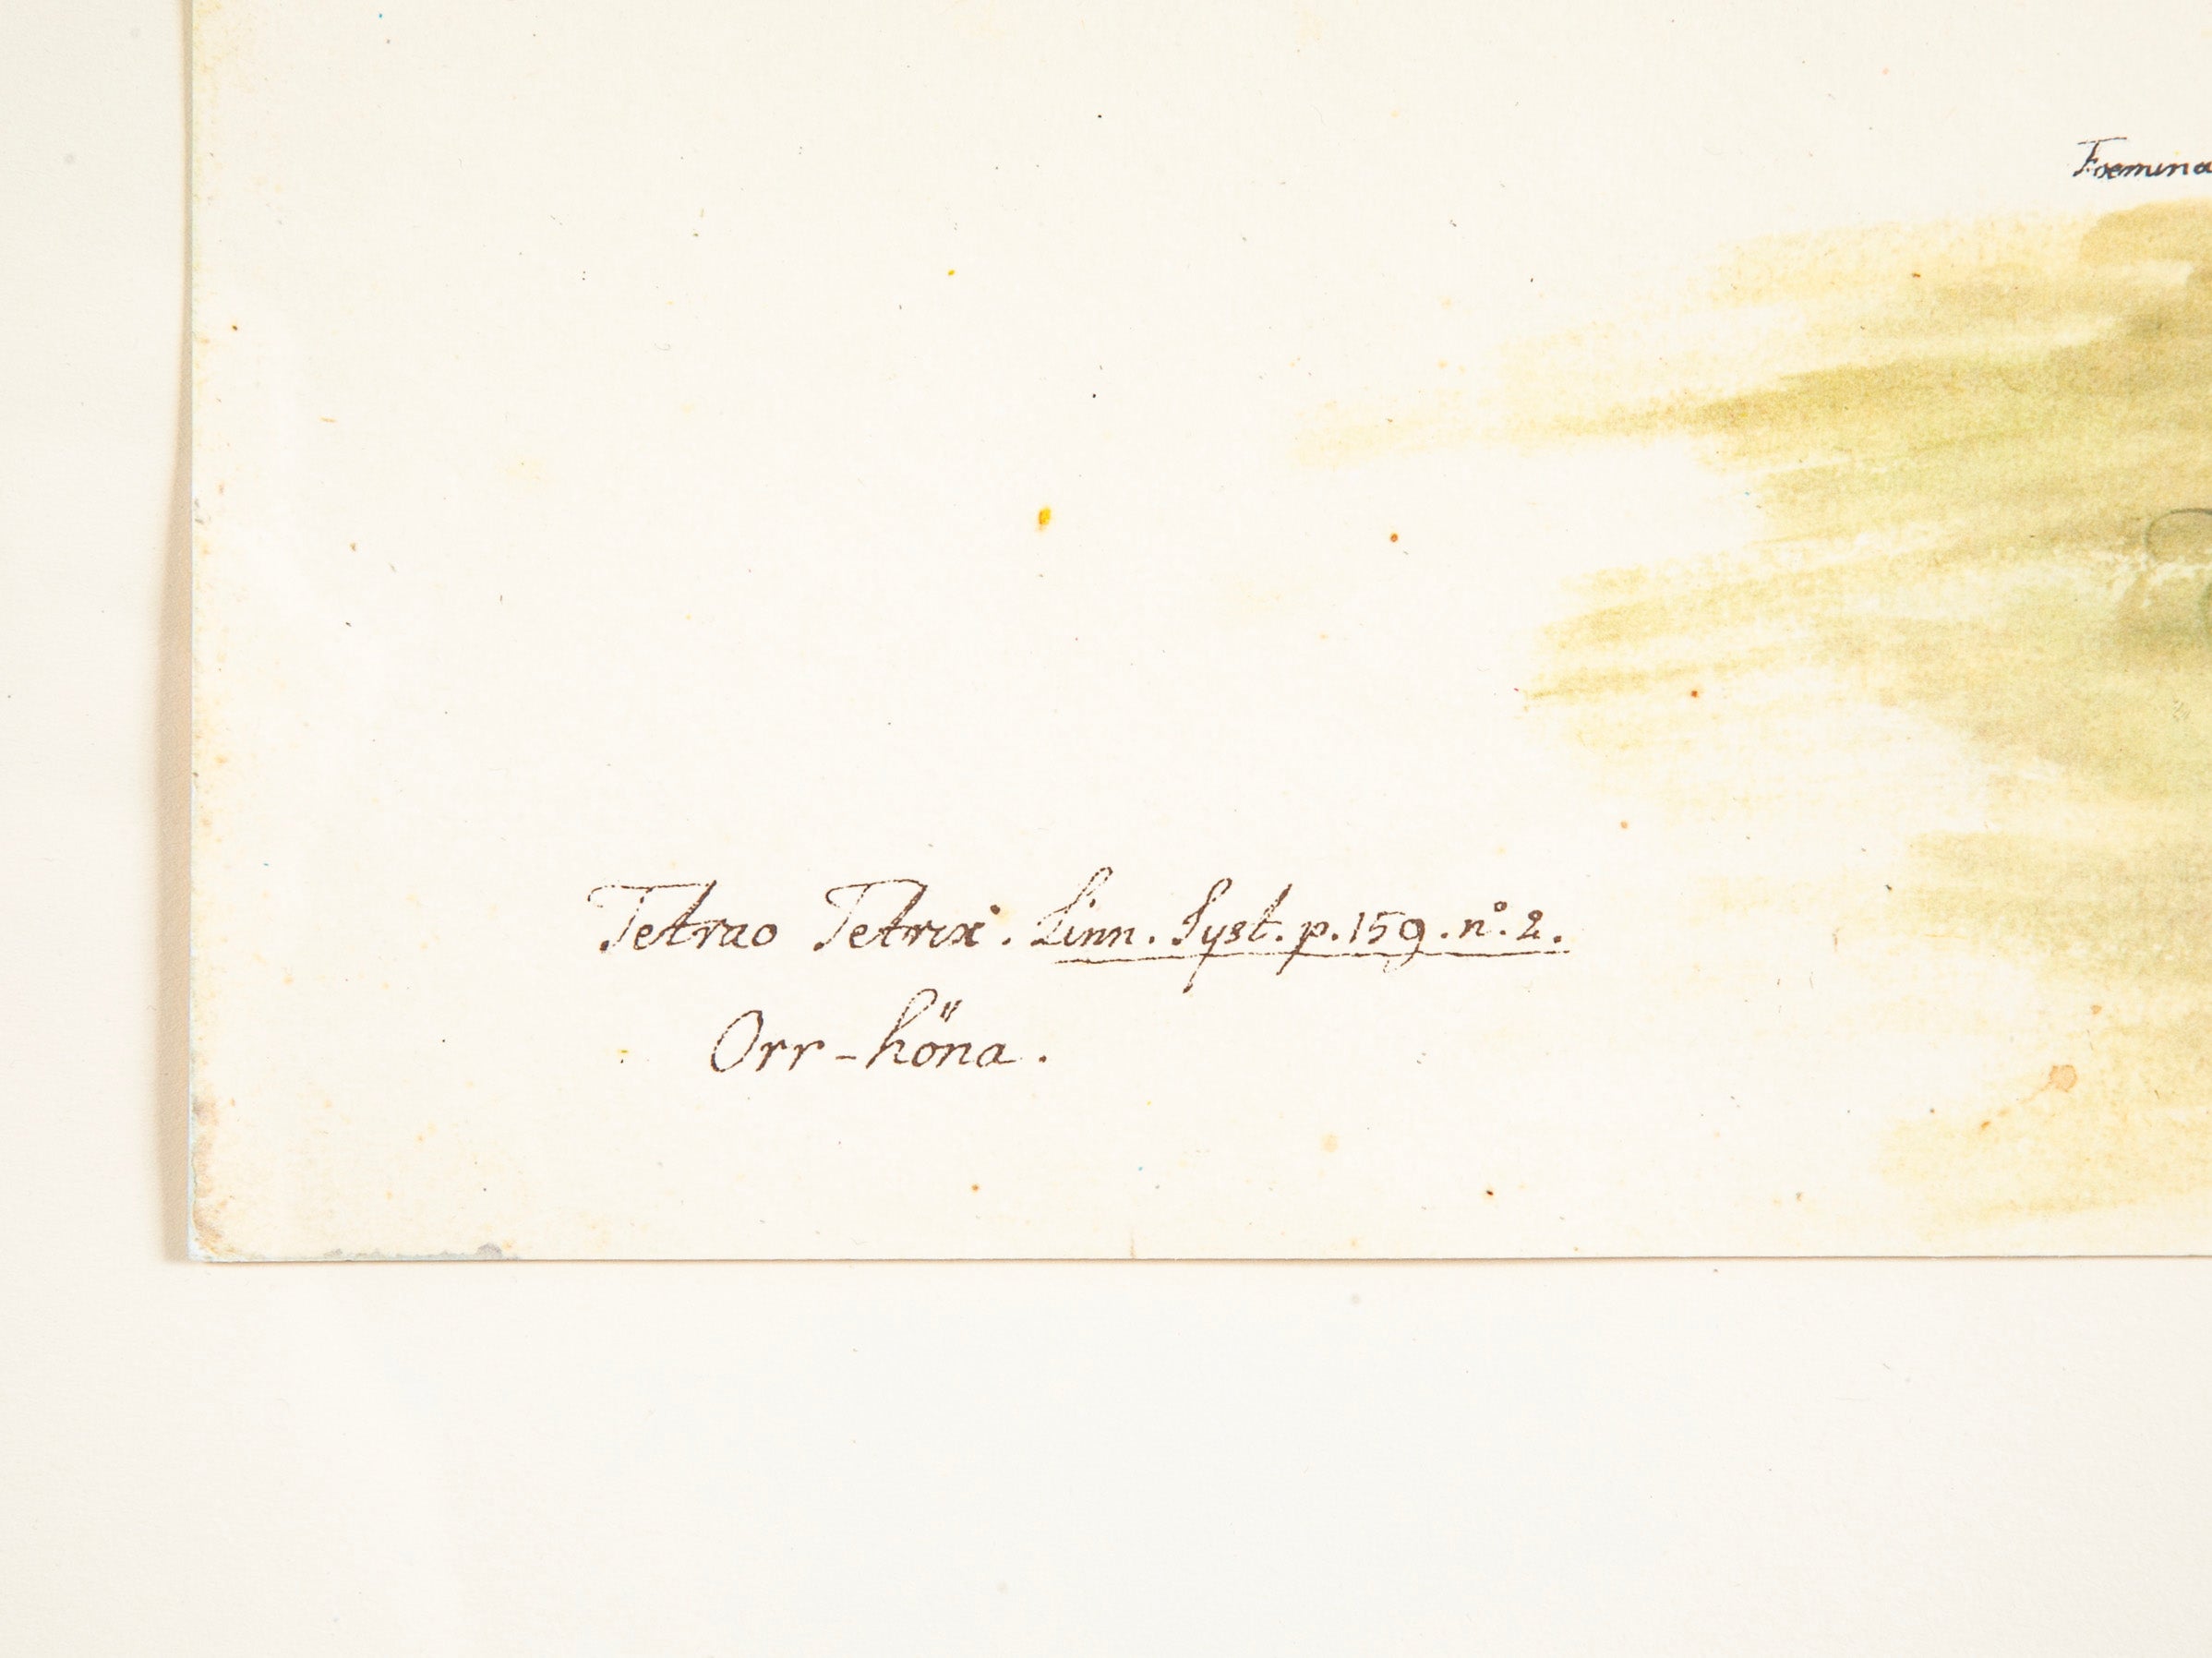 Foemina
Tetrao Tetrix. Linn. Syst. p. 159. n.º 2.
Orr-höna.